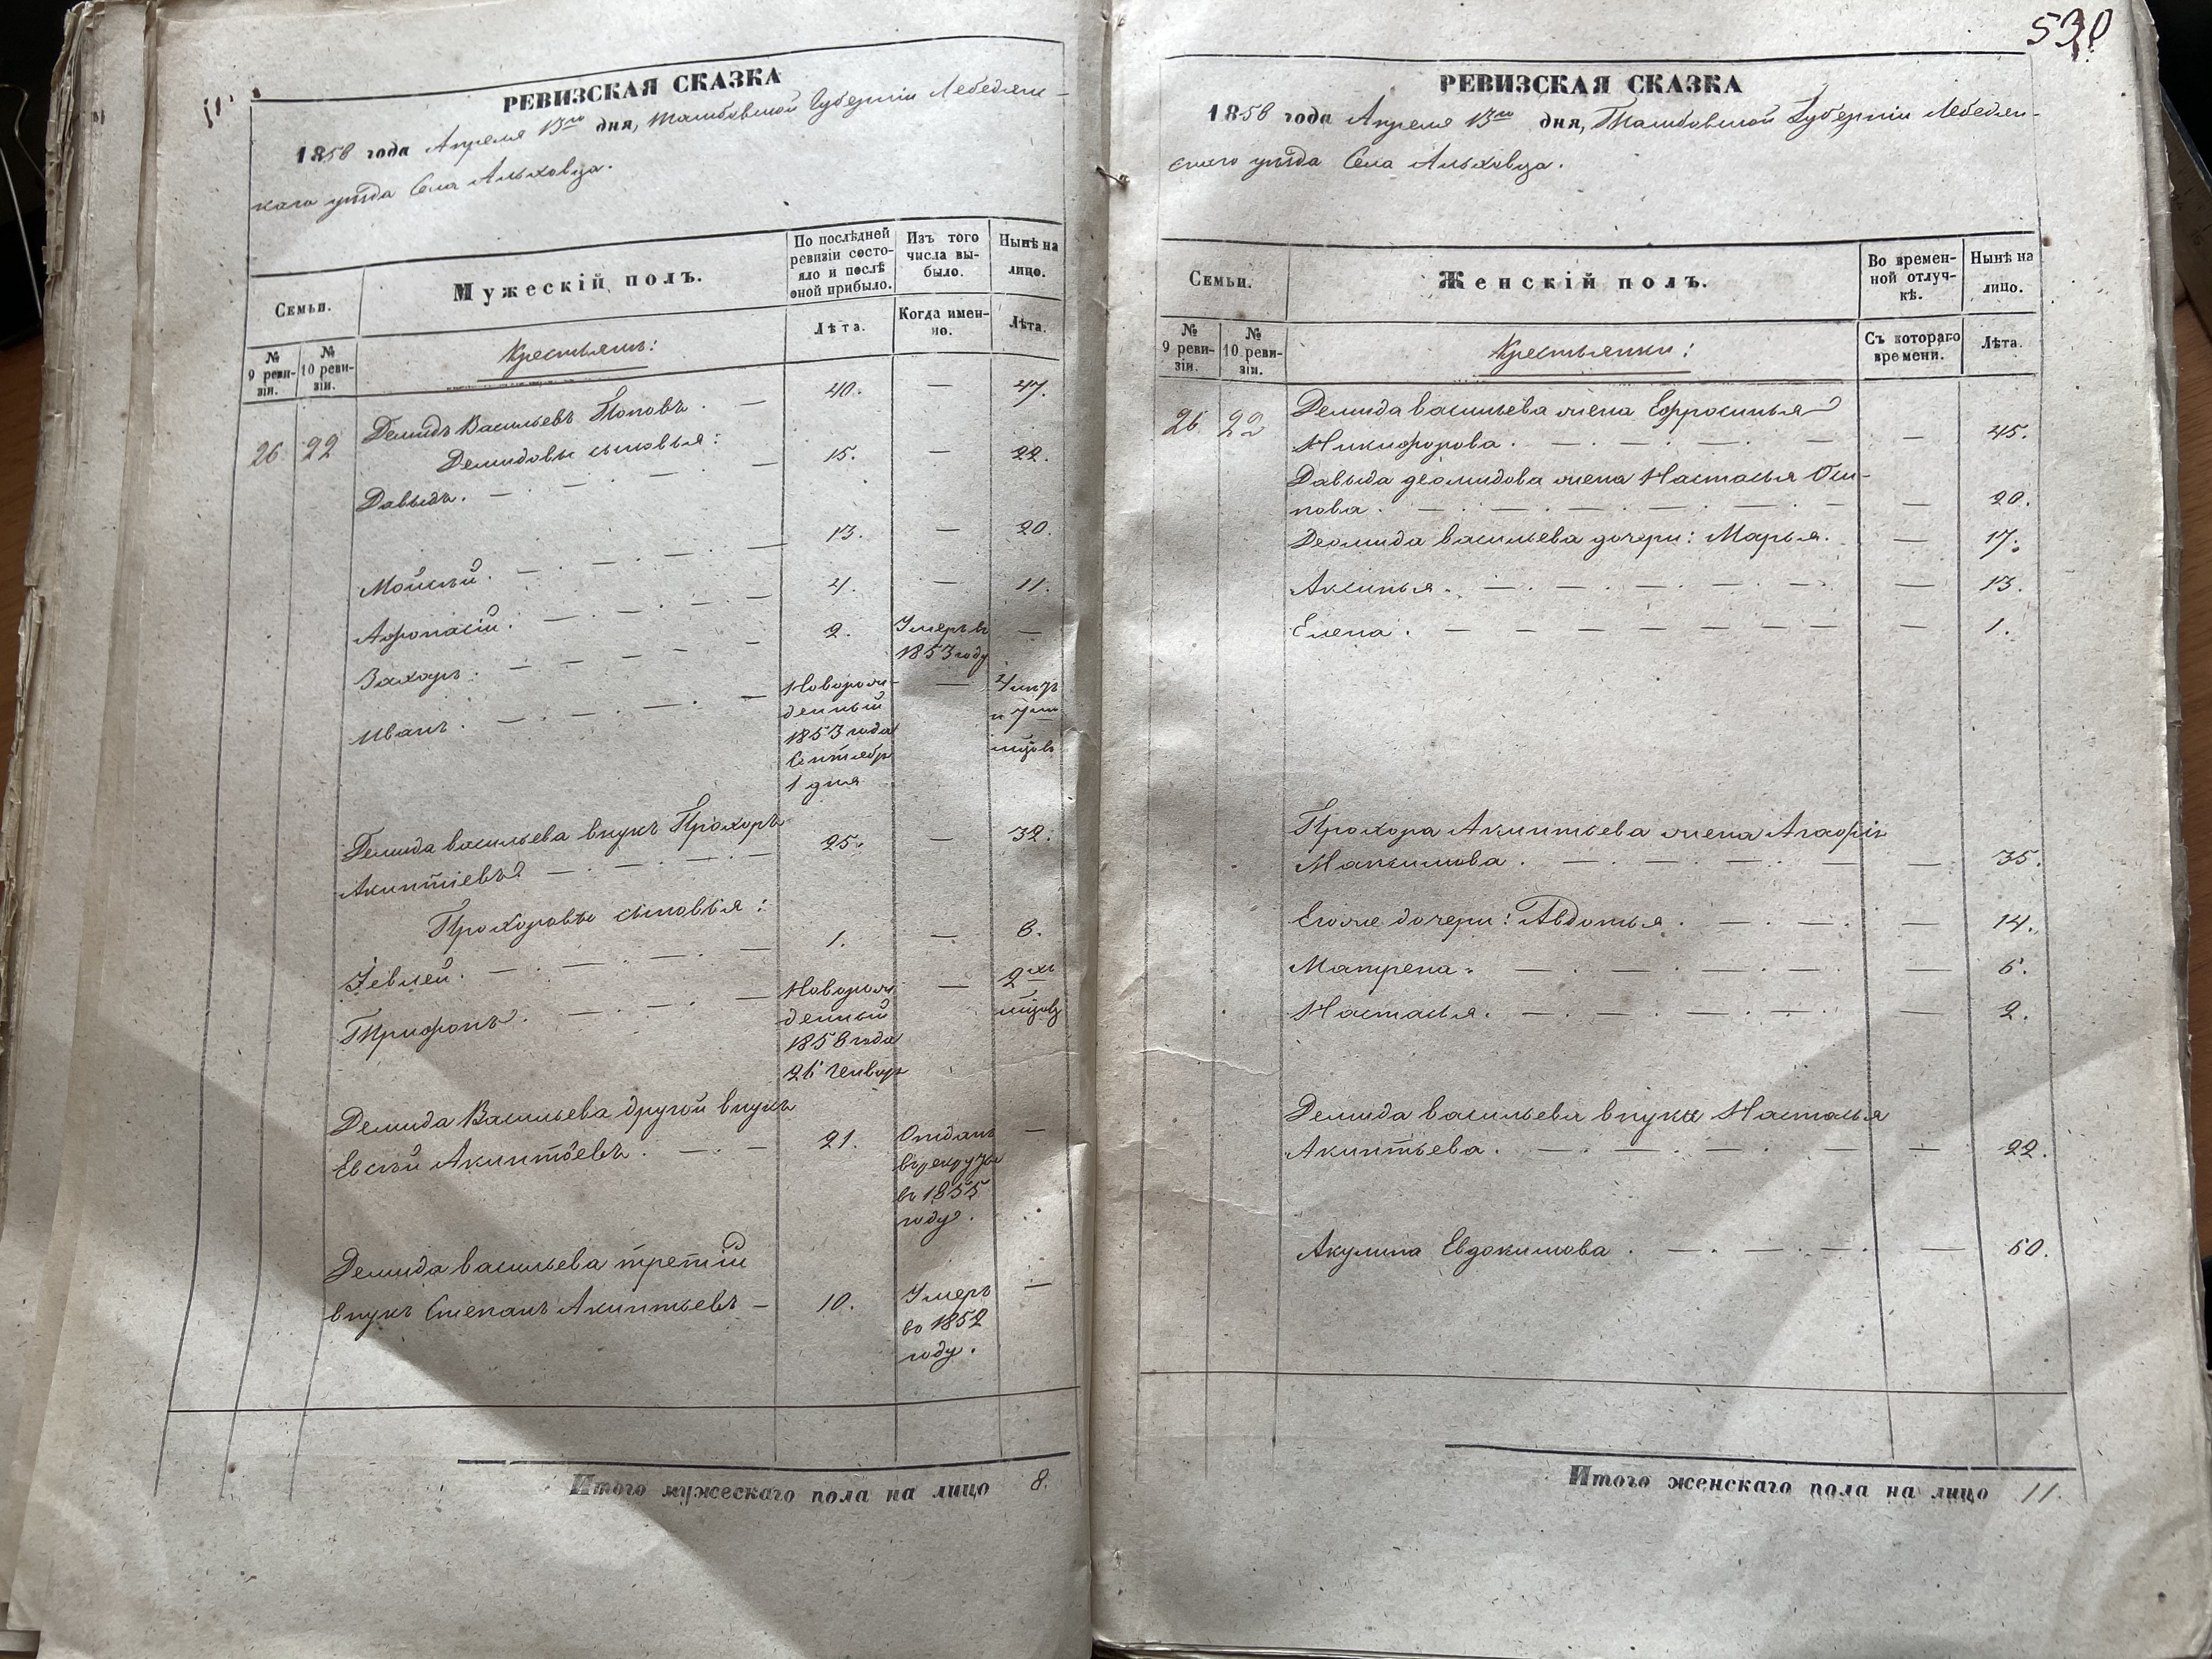 530
РЕВИЗСКАЯ СКАЗКА
1858 года Апреля 13го дня, Тамбовской Губерніи Лебедян-
скаго уѣзда Села Ольховца.
Семьи.
Мужескій полъ.
По послѣдней ревизіи состояло и послѣ оной прибыло.
Изъ того числа выбыло.
Нынѣ на лицо.
№ 9 ревизіи.
№ 10 ревизіи.
Крестьянъ:
Лѣта.
Когда именно.
Лѣта.
26 22 Демидъ Васильевъ Поповъ. — 40. — 47.
Демидовы сыновья:
Давыдъ. 15. — 22.
Мойсѣй. 13. — 20.
Афонасій. 4. — 11.
Захаръ. 2. Умеръ въ 1853 году —
Иванъ. Новорожденный 1853 года Сентябр 1 дня —
Демида васильева внукъ Прохоръ
Акинтіевъ — 25. — 32.
Прохоровы сыновья:
Іевлей. 1. — 8.
Трифонъ. Новорожденный 1858 года 26 Генвар — 2хъ мѣсяцовъ
Демида Васильева другой внукъ
Евсѣй Акинтьевъ. 21. Отданъ въ рекруты въ 1855 году. —
Демида васильева третій
внукъ Степанъ Акинтьевъ — 10. Умеръ во 1852 году. —
Итого мужескаго пола на лицо 8.
РЕВИЗСКАЯ СКАЗКА
1858 года Апреля 13го дня, Тамбовской Губерніи Лебедян-
скаго уѣзда Села Ольховца.
Семьи.
Женскій полъ.
Во временной отлучкѣ.
Нынѣ на лицо.
№ 9 ревизіи.
№ 10 ревизіи.
Крестьянки:
Съ котораго времени.
Лѣта.
26 22 Демида васильева жена Ефросинья
Никифорова. — 45.
Давыда деомидова жена Настасья Оси-
пова. — 20.
Деомида васильева дочери: Марья. — 17.
Аксинья. — 13.
Елена. — 1.
Прохора Акинтьева жена Агафія
Максимова. — 35.
Егоже дочери: Авдотья. — 14.
Матрена. — 6.
Настасья. — 2.
Демида васильева внука Настасья
Акинтьева. — 22.
Акулина Евдокимова. — 50.
Итого женскаго пола на лицо 11.